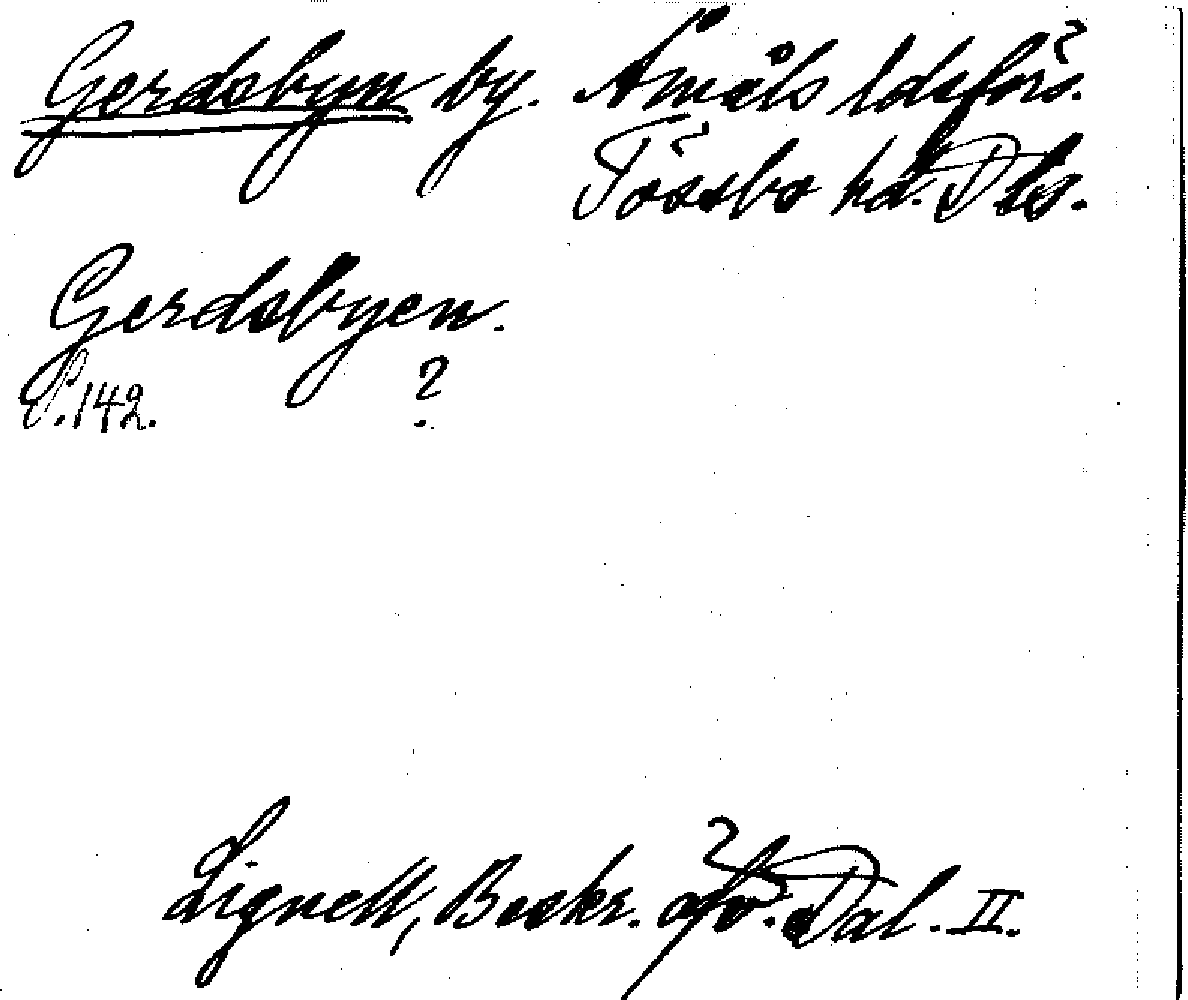 Gerdsbyn by. Åmåls ldsförs.
Tössbo hd. Dls.
Gerdsbyen.
S. 142. ?
Lignell, Beskr. öfv. Dal. II.